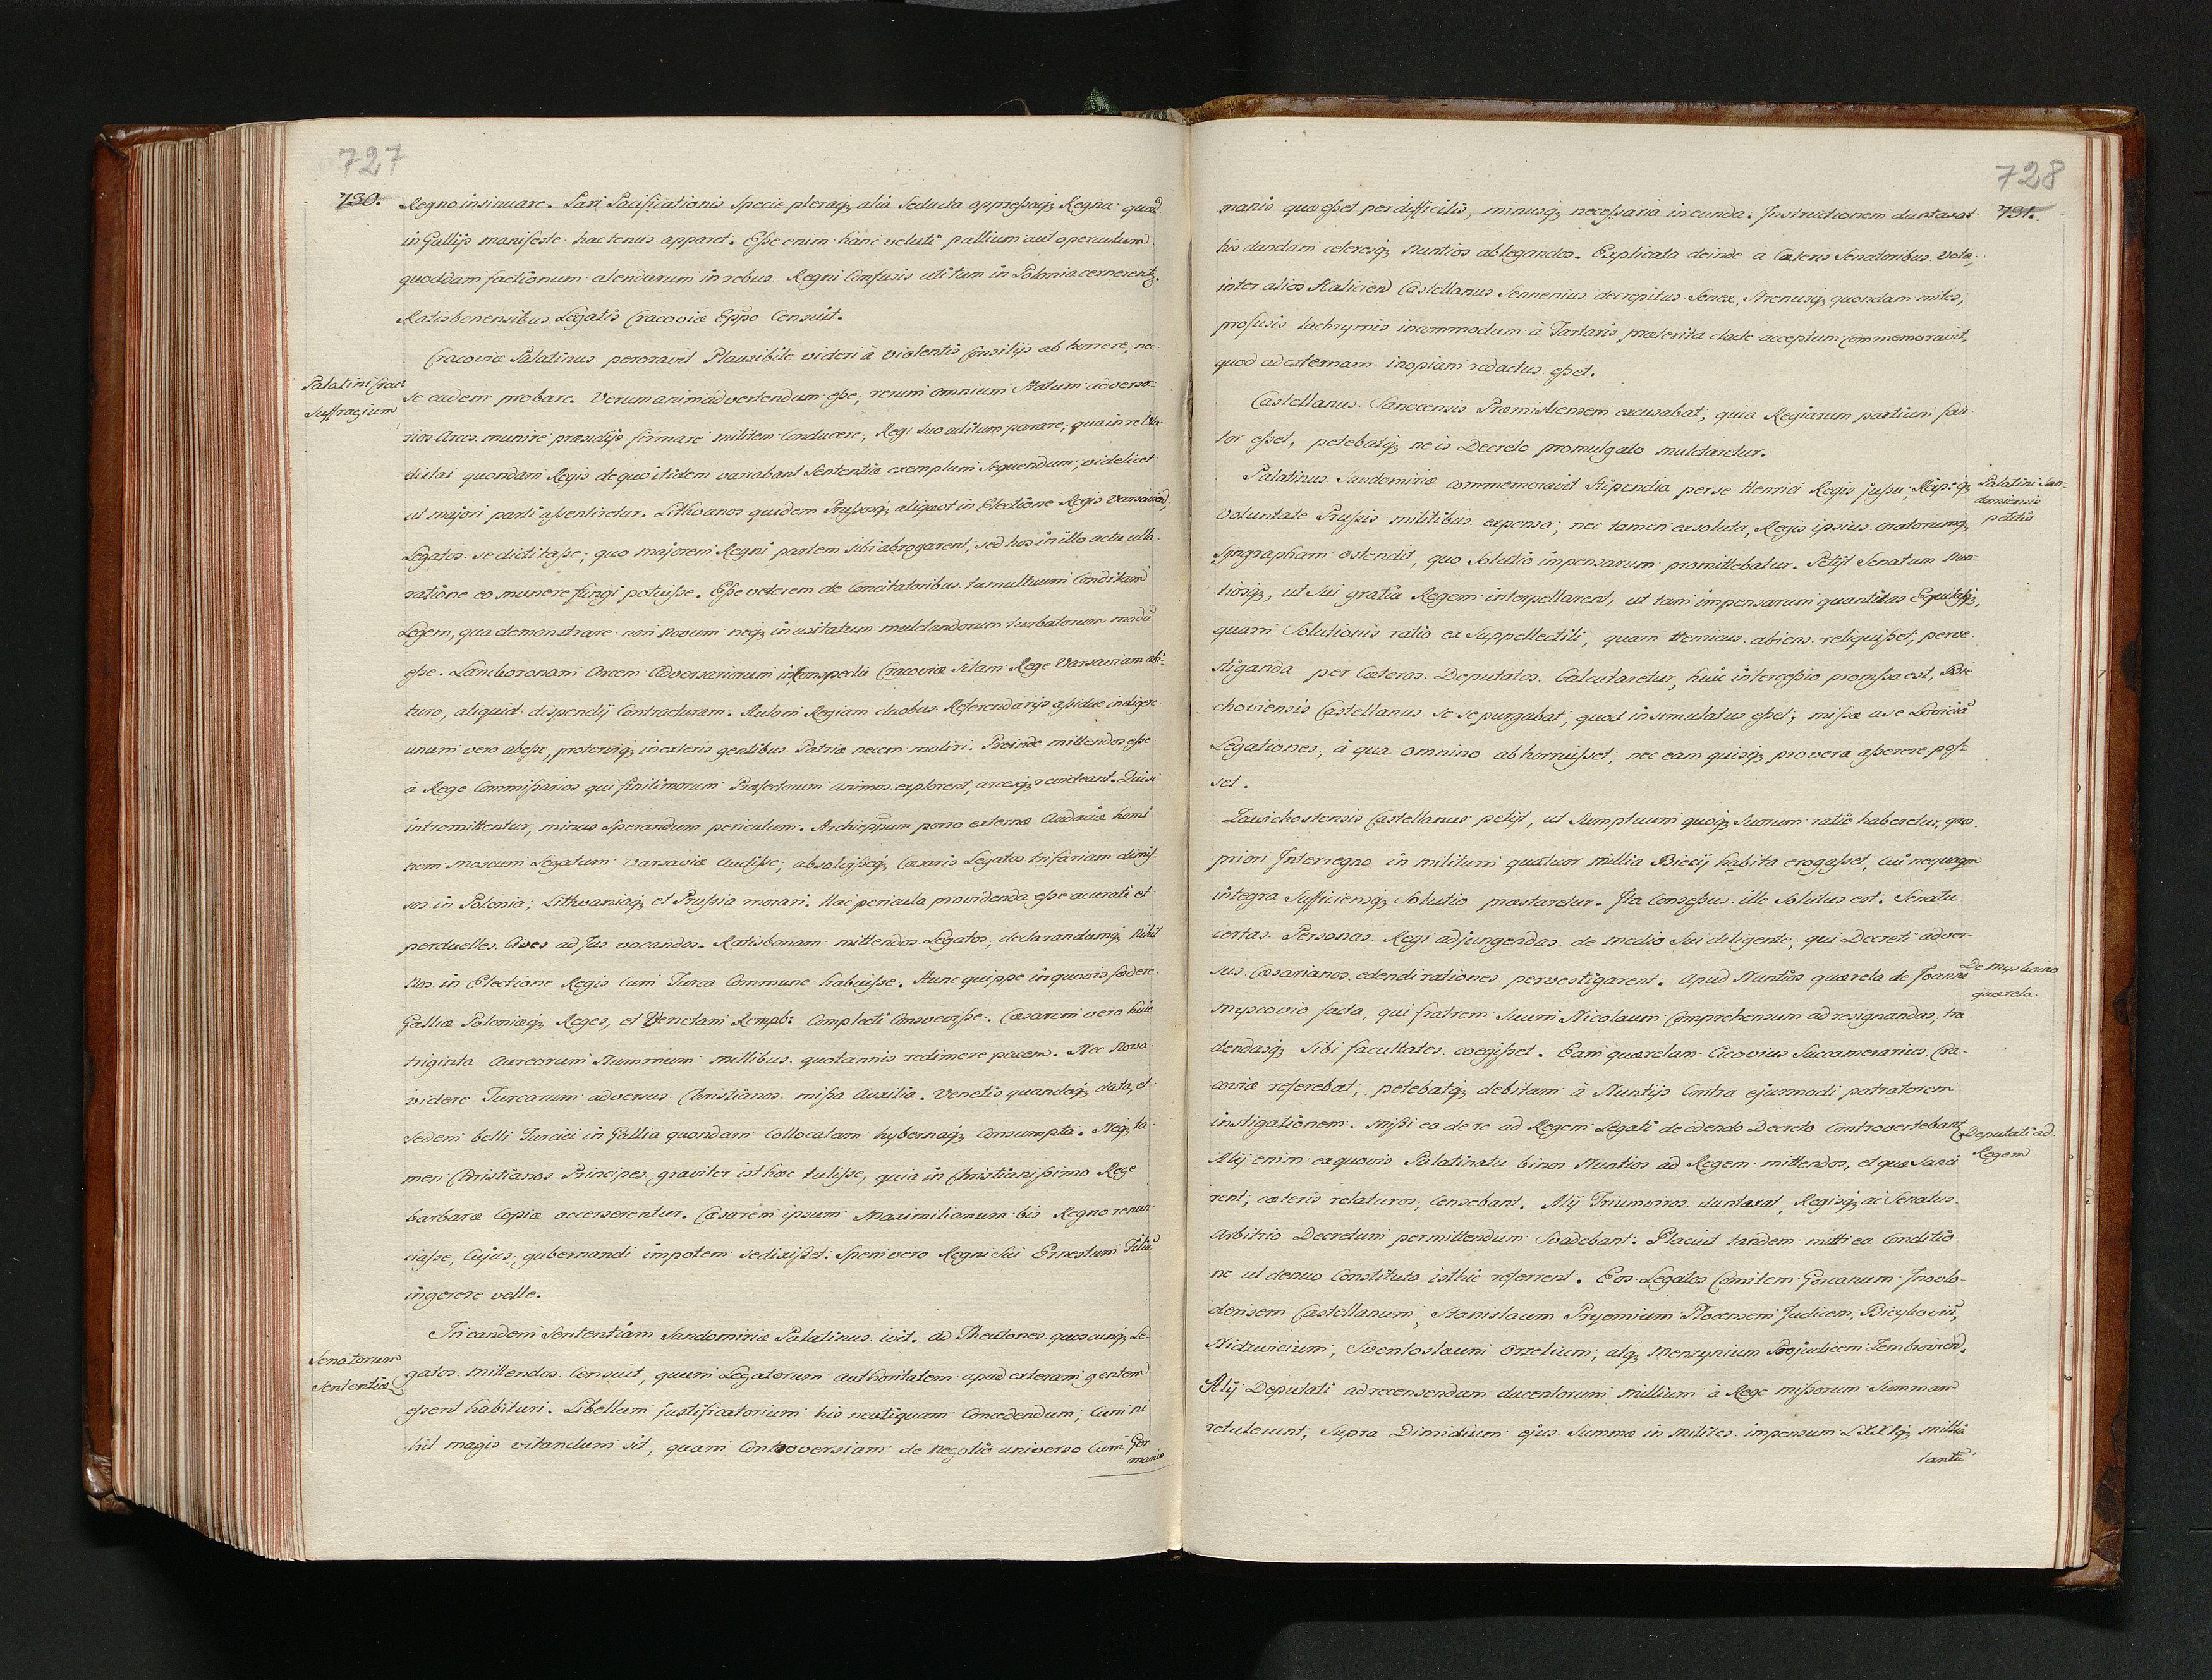 727
730.
Regno insinuare. Pari Pacificationis Specie pleraq; alia Seducta oppressaq; Regna quod
in Gallijs manifeste hactenus apparet. Esse enim hanc veluti pallium aut operculum
quoddam factionum alendarum in rebus Regni Confusis uti tum in Polonia cernerent.
Ratisbonensibus Legatis Cracoviæ Eppo Censuit.
Cracoviæ Palatinus peroravit Plausibile videri à violentis Consilijs abhorrere, nec
Palatini Crac:
Suffragium
se eadem probare. Verum animadvertendum esse, rerum omnium Statum adversa-
rios Arces munire præsidijs firmare militem Conducere, Regi suo aditum parare, qua in re Vla-
dislai quondam Regis de quo itidem variabant Sententiæ exemplum Sequendum, videlicet
ut majori parti assentiretur. Lithvanos quidem Prussosq; aliquot in Electione Regis
Legatos se dictitasse, quo majorem Regni partem sibi abrogarent, sed hos in illo actu ulla
ratione eo munere fungi potuisse. Esse veterem de Concitatoribus tumultuum Conditam
Legem, qua demonstrare non novum neq; inusitatum mulctandorum turbatorum modū
esse. Lanckoronam Arcem Adversariorum in Conspectu Cracoviæ Sitam Rege Varsaviam abi-
turo, aliquid dispendij Contracturam. Aulam Regiam duobus Referendarijs assidue indigere
unum vero abesse, protervisq; in exteris gentibus Patriæ necem moliri. Proinde mittendos esse
à Rege Commissarios qui finitimorum Præfectorum animos explorent, arcesq; revideant. Qui si
intromittentur, minus Sperandum periculum. Archieppum porro externæ Audaciæ homi
nem Moscum Legatum Varsaviæ Audisse, absolvisseq; Cæsaris Legatos trifariam dimis-
sos in Polonia, Lithvaniaq; et Prussia morari. Hæc pericula providenda esse acurate et
perduelles Cives ad Jus vocandos. Ratisbonam mittendos Legatos, declarandumq; Nihil
Nos in Electione Regis Cum Turca Commune habuisse. Hunc quippe in quovis fædere
Galliæ Poloniæq; Reges, et Venetam Rempb: Complecti Consvevisse. Cæsarem vero huic
triginta Aureorum Nummum millibus quotannis redimere pacem. Nec Nova
videre Turcarum adversus Christianos missa Auxilia. Venetis quandoq; data, et
Sedem belli Turcici in Gallia quondam Collocatam hybernaq; Consumpta. Neq; ta
men Christianos Principes graviter isthæc tulisse, quia in Christianissimo Rege
barbaræ Copiæ accerserentur. Cæsarem ipsum Maximilianum bis Regno renun
ciasse, Cujus gubernandi impotem se dixisset. Spem vero Regni Sui Ernestum Filiū
ingerere velle.
In eandem Sententiam Sandomiriæ Palatinus ivit. ad Theutones quoscunq; Le-
Senatorum
Sententiæ
gatos mittendos Censuit, quum Legatorum authoritatem apud exteram gentem
essent habituri. Libellum justificatorium his neutiquam Concedendum, Cum ni
hil magis vitandum sit, quam Controversiam de Negotio universo Cum Ger
manis
728
731.
manis quæ esset perdifficilis, minusq; necessaria ineunda. Instructionem duntaxat
his dandam celeresq; Nuntios ablegandos. Explicata deinde à Cæteris Senatoribus vota,
inter alios Halicien Castellanus Sennenius decrepitus Senex, Strenusq; quondam miles,
profusis lachrymis incommodum à Tartaris præterita clade acceptum Commemoravit,
quod ad externam inopiam redactus esset.
Castellanus Sanocensis Præmisliensem excusabat, quia Regiarum partium fau
tor esset, petebatq; ne is Decreto promulgato mulctaretur.
Palatinus Sandomiriæ commemoravit Stipendia per se Henrici Regis jussu, Reipq;
Palatini San-
domiensis
petitio
Voluntate Prussis militibus expensa, nec tamen exsoluta, Regis ipsius Oratorumq;
Syngrapham ostendit, quo Solutio impensarum promittebatur. Petijt Senatum Nun-
tiosq; ut Sui gratia Regem interpellarent, ut tam impensarum quantitas Equitesq;
quam Solutionis ratio ex Suppellectili, quam Henricus abiens reliquisset, perve
stiganda per Cæteros Deputatos Calcularetur, huic intercessio promissa est, Bie
choviensis Castellanus se se purgabat, quod insimulatus esset, missæ a se Loviciū
Legationes, à qua omnino abhorruisset, nec eam quisq; pro vera asserere pos-
set.
Zavichostensis Castellanus petijt, ut Sumptuum quoq; Suorum ratio haberetur, quos
priori Interregno in militum quatuor millia Biecij habita erogasset, cui nequaqm
integra Sufficiensq; Solutio præstaretur. Ita Consessus ille Solutus est. Senatu
certas Personas Regi adjungendas de medio Sui diligente, qui Decreti adver-
sus Cæsarianos edendi rationes pervestigarent. Apud Nuntios quærela de Joanne
De Myskovio
quærela.
Myscovio facta, qui fratrem Suum Nicolaum Comprehensum ad resignandas, tra
dendasq; Sibi facultates coegisset. Eam quærelam Cicovius Succamerarius Cra-
coviæ referebat, petebatq; debitam à Nuntijs Contra ejusmodi patratorem
instigationem. Missi ea de re ad Regem Legati de edendo Decreto Controvertebant
Deputati ad
Regem
Alij enim ex quovis Palatinatu binos Nuntios ad Regem mittendos, et quæ Sanci
rent, cæteris relaturos, Censebant. Alij Triumviros duntaxat, Regisq; ac Senatus
Arbitrio Decretum permittendum Svadebant. Placuit tandem mitti ea Conditio
ne ut denuo Constituta isthic referrent. Eos Legatos Comitem Gorcanum Inovlo-
densem Castellanum, Stanislaum Pryemium Plocensem Judicem, Bicykoviū,
Nidzvicium, Sventoslaum Orzelium, atq; Menzynium Projudicem Zembrovien.
Alij Deputati ad recensendam ducentorum millium à Rege missorum Summam
retulerunt, Supra Dimidium ejus Summæ in Milites impensum LXXXq; millia
tantū